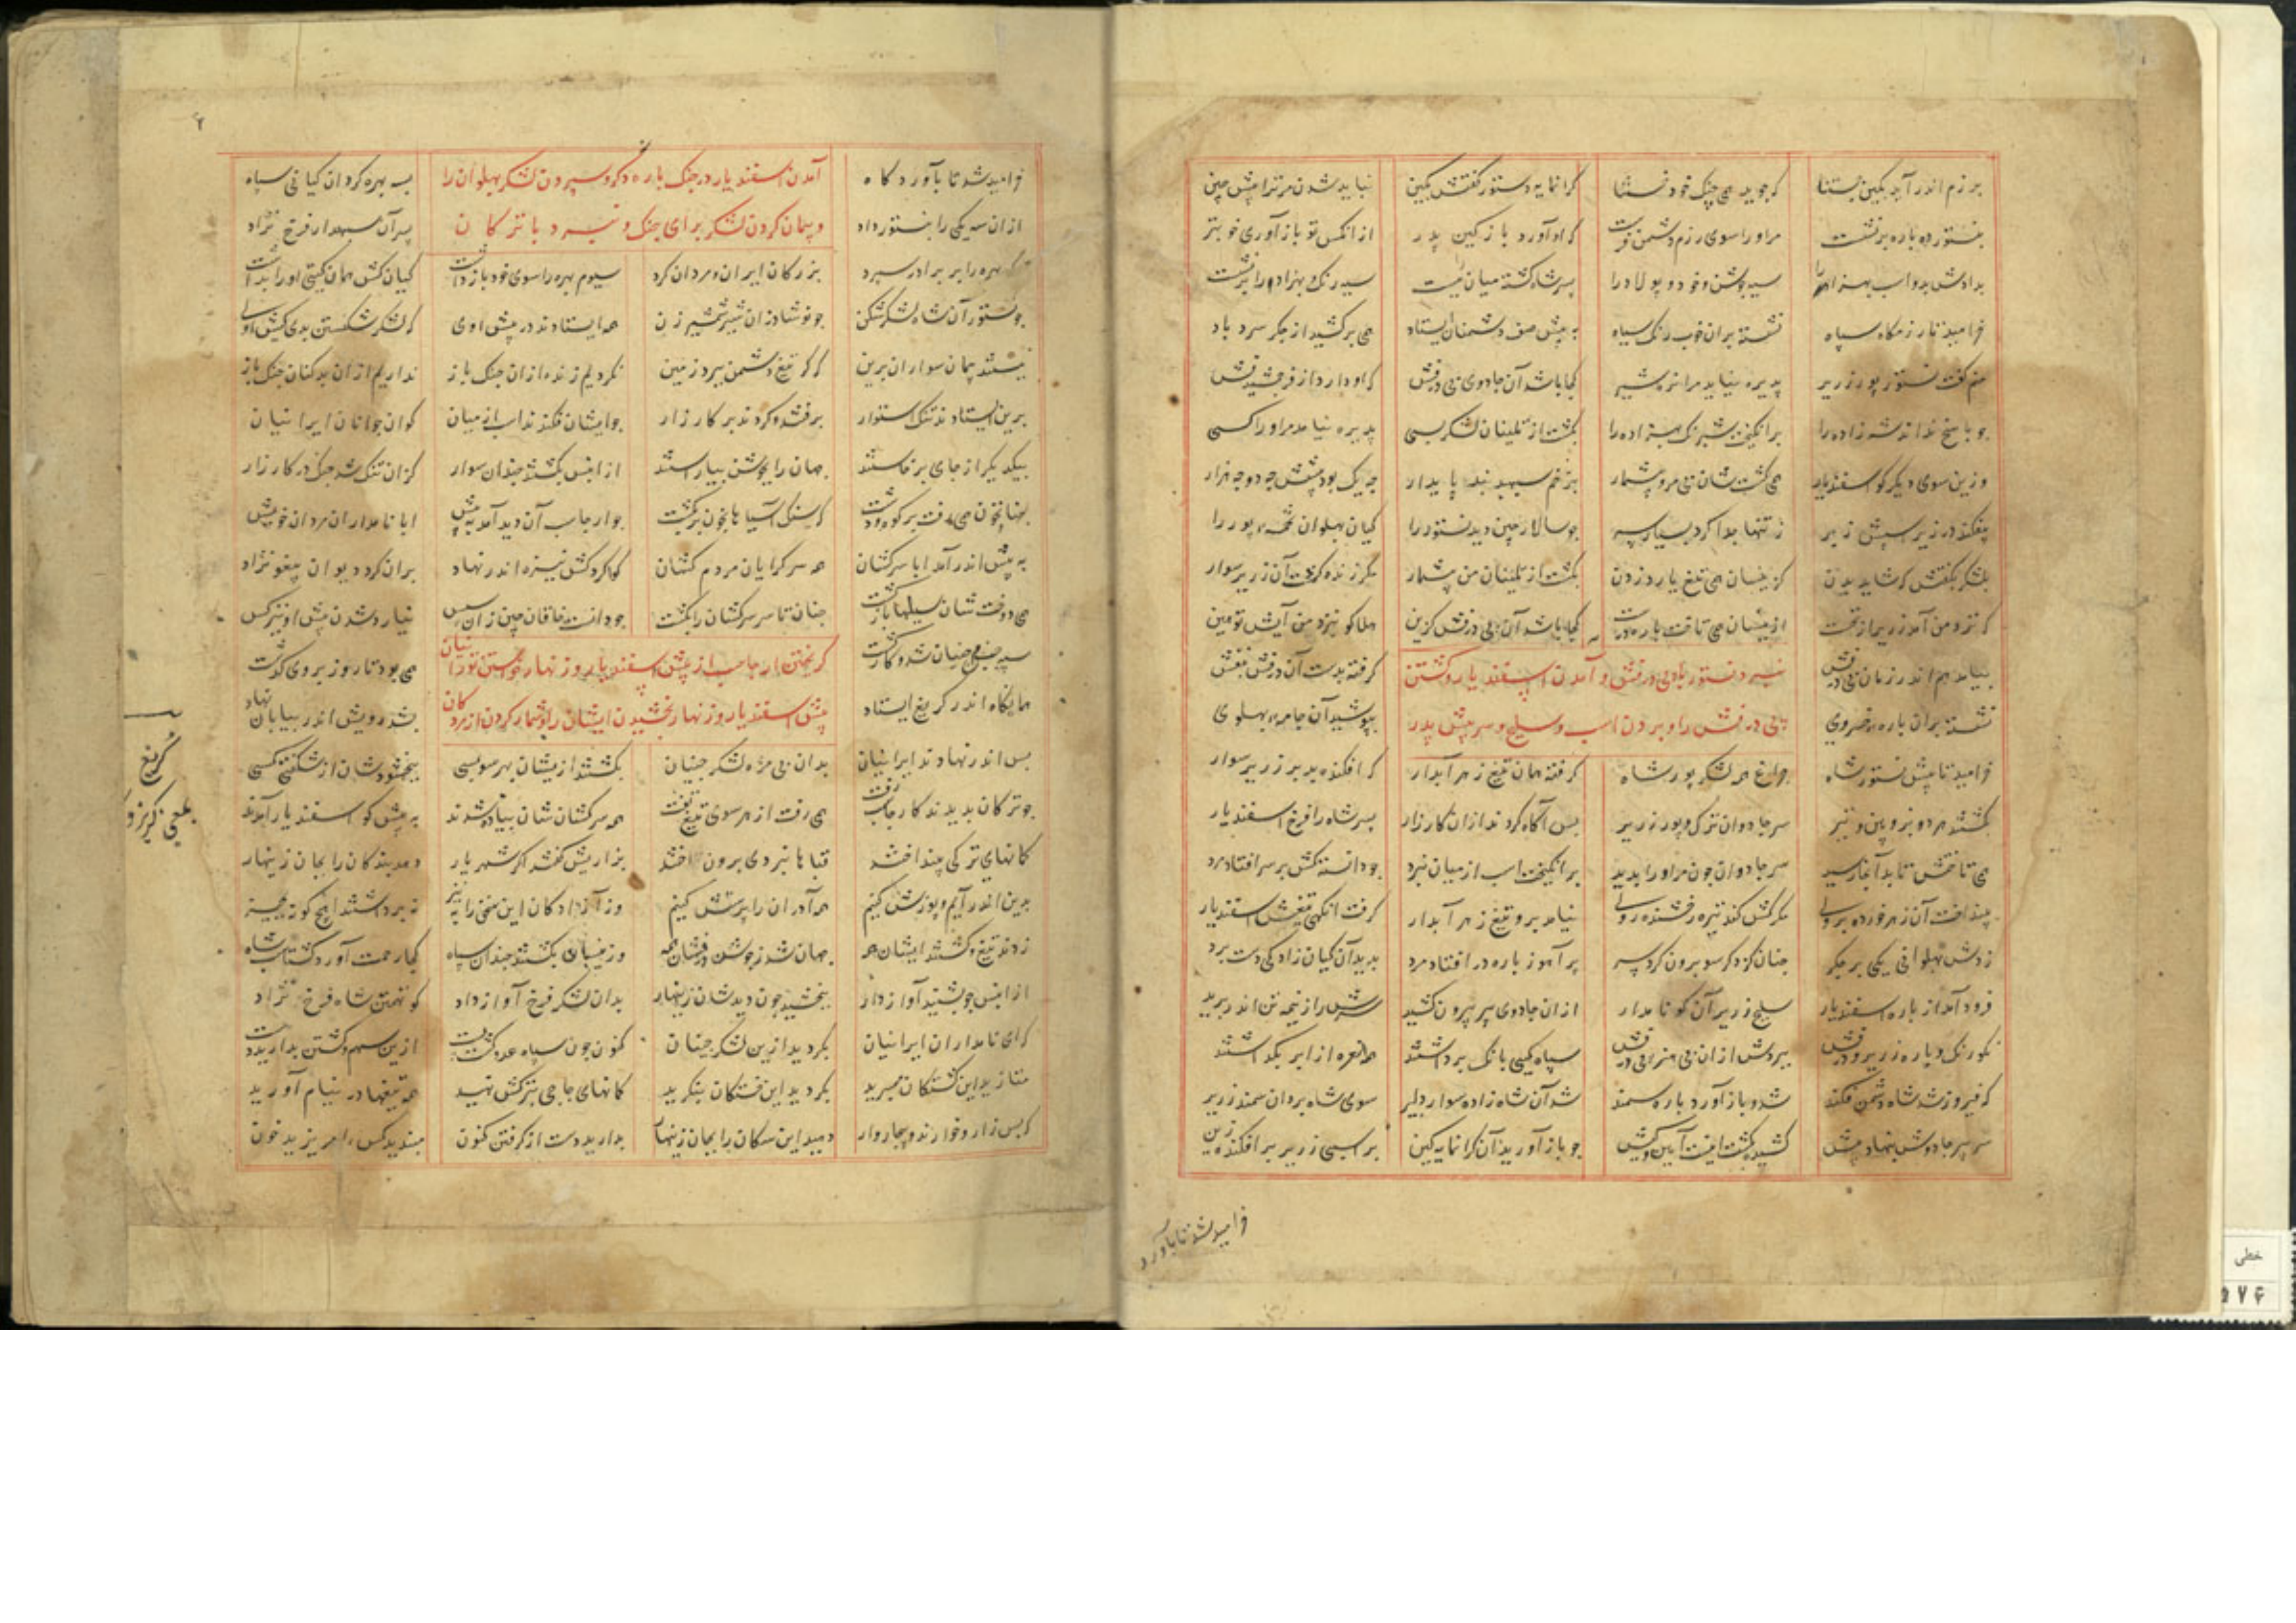 برزم اندر آید بکین بستنا که جوید همی جنک خود نستنا کرانمایه دستور گفتش بکین نباید شدن مر ترا پیش چین
بنستور ده باره برنشست مر او را سوی رزم دشمن فرست که او آورد باز کین پدر از انکس تو باز آوری خوبتر
بدادش بدو اسب بهزاد را سیه جوشن و خود و پولاد را پسر شاه کشته میان بست سیه رنک بهزاد را برنشست
خرامید تا رزمکاه سپاه نشسته بران خوب رنک سیاه به پیش صف دشمنان ایستاد همی برکشید از جکر سرد باد
منم گفت نستور پور زریر پذیره نیاید مرا نره شیر کجا باشد آن جادوی بی درفش که او دارد از فر جمشید فش
جو پاسخ نداند شه زاده را برانکیخت شبرنک بهزاده را بکشت از تکینان لشکر بسی پذیره نیامد مر او را کسی
وزین سوی دیکر کو اسفندیار همی کشت شان بی مر و بی شمار
بیفکند در زیر سپش زیر ز تنها جدا کرد بسیار سر جو سالار چین دید نستور را کیان پهلوان تخمه پور را
بلشکر بگفتش که شاید بدن کزینسان همی تیغ یارد زدن بکشت از تکینان من بی شمار مکر زنده گشت آن زریر سوار
که نزد من آمد زریر از نخست ازینسان همی تاخت باره درست کجا باشد آن بی درفش کزین هلا کو نزد من آیش تو هین
نبرد نستور با بی درفش و آمدن اسفندیار و کشتن
بی درفش را و بردن اسب و سلیح و سر پیش پدر
بیامد هم اندر زمان بی درفش گرفته بدست آن درفش بنفش
نشسته بران باره خسروی بپوشید آن جامه پهلوی
خرامید تا پیش نستور شاه چراغ همه لشکر پور شاه گرفته همان تیغ زهر آبدار که افکنده بد بر زریر سوار
بگشتند هر دو بزوپین و تیر سر جادوان ترک و پور زریر پس آگاه کردند از آن کارزار پسر شاه را فرخ اسفندیار
همی تاختش تا بد آنجا رسید سر جادوان چون مر او را بدید برانکیخت اسب از میان نبرد چو دانست کش بر سر افتاد مرد
بینداخت آن زهر خورده بروی مکر کش کند تیره رخشنده روی نیامد برو تیغ زهر آبدار گرفت انکهی تیغش اسفندیار
زدش پهلوانی یکی بر جکر چنان کز دکر سو برون کرد سر پر آهو ز باره در افتاد و مرد بدید آن کیان زادکی دست برد
فرود آمد از باره اسفندیار سلیح زریر آن کو نامدار از ان جادوی پیر بیرون کشید سرش را ز نیمه تن اندر برید
نکو رنک باره زریر و درفش ببردش از ان بی هنر بی درفش سپاه کیی بانک برداشتند همه نعره از ابر بگذاشتند
که فیروز شد شاه و دشمن فکند شد و باز آورد باره سمند شد آن شاه زاده سوار دلیر سوی شاه بردان سمند زریر
سر پیر جادوش بنهاد پیش کشنده بکشت اینت آیین و کیش چو باز آورید آن کرانمایه کین بر اسپی زریر بر افکنده زین
خرامید شد تا بآورد
۲
آمدن اسفندیار در جنک باره دکر و سپردن لشکر پهلوان را
و پیمان کردن لشکر برای جنک و نبرد با ترکان
خرامید شد تا بآوردکاه به سه بهره کرد ان کیانی سپاه
از ان سه یکی را بنستور داد پس آن سپهدار فرخ نژاد
دکر بهره را بر برادر سپرد بزرکان ایران و مردان کرد سیوم بهره را سوی خود باز داشت
چو نستور آن شاه لشکرشکن چو نوشاذر ان شیر شمشیر زن همه ایستادند در پیش اوی
ببستند پیمان سواران برین که کر تیغ دشمن ببرد زمین نکردیم زنده ازان جنک باز نداریم ازان بدکنان جنک باز
برین ایستادند تنک استوار برفتند و کردند بر کارزار چو ایشان فکندند اسب از میان کوان جوانان ایرانیان
بیکدیکر از جای برخاستند جهان را بجوشن بیاراستند از ایشان بکشتند چندان سوار کزان تنک شد جنک در کارزار
چنان خون همی رفت بر کوه و دشت که سنک آسیاها بخون بر بکشت چو ارجاسب آن دید آمد به پیش ابا نامداران مردان خویش
به پیش اندر آمد ابا سرکشان همه سرکرایان مردم کشان کو کردکش نیزه اندر نهاد بران کرد دیوان پیغو نژاد
همی دوخت شان سینها باز پشت چنان تا سر سرکشان را بکشت چو دانست خاقان چین زان سپس نیارد شدن پیش او نیز کس
کریختن ارجاسب از پیش اسفندیار و زنهار خواستن تورانیان
پیش اسفندیار و زنهار بخشیدن ایشان را و شمار کردن از مردکان
سپه جنب جنبان شد و کار کشت همی بود تا روز بر وی گذشت
همانکاه اندر کریغ ایستاد بشد رویش اندر بیابان نهاد
پس اندر نهادند ایرانیان بدان بی مره لشکر چینیان بکشتند ازیشان بهر سو بسی ببخشودشان از شکفتی کسی
چو ترکان بدیدند کارجاسب رفت همی رفت از هر سوی تیغ تفت همه سرکشان شان پیاده شدند به پیش کو اسفندیار آمدند
کمانهای ترکی بینداختند قباهای نبردی برون آختند بزاریش گفتند اکر شهریار دهد بندکان را بجان زینهار
بدین اندر آیم و پوزش کنیم همه آذران را پرستش کنیم وز آزادکان این سخن را به نیز نه برداشتند ایچ کونه بچیز
زدند تیغ و کشتند ایشان همه جهان شد ز جوشن درفشان همه وزینسان بکشتند چندان سپاه کجا رحمت آورد کشتاسب شاه
از ایشان چو بشنید آواز دار ببخشید چون دیدشان زینهار بدان لشکر فرخ آواز داد کو تهمتن شاه فرخ نژاد
که ای نامداران ایرانیان بکردید ازین لشکر چینیان کنون چون سپاه عدو کشت پست ازین سهم و کشتن بدارید دست
متازید این کشتکان مسپرید بکردید این خستکان بنکرید کمانهای چاچی بترکش نهید همه تیغها در نیام آورید
که بس زار و خوارند و بیچاروار دهید این سکان را بجان زینهار بدارید دست از گرفتن کنون مبندید کس را مریزید خون
کریغ
بمعنی کریز و
خطی